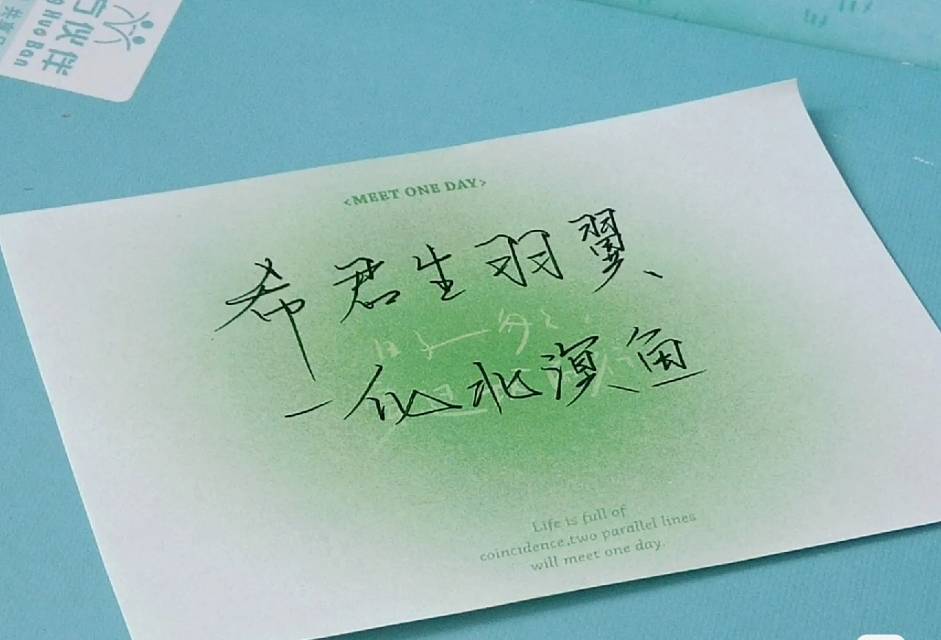 伙伴
Huo Ban
<MEET ONE DAY>
希君生羽翼
一化北溟鱼
Life is full of
coincidence,two parallel lines
will meet one day.